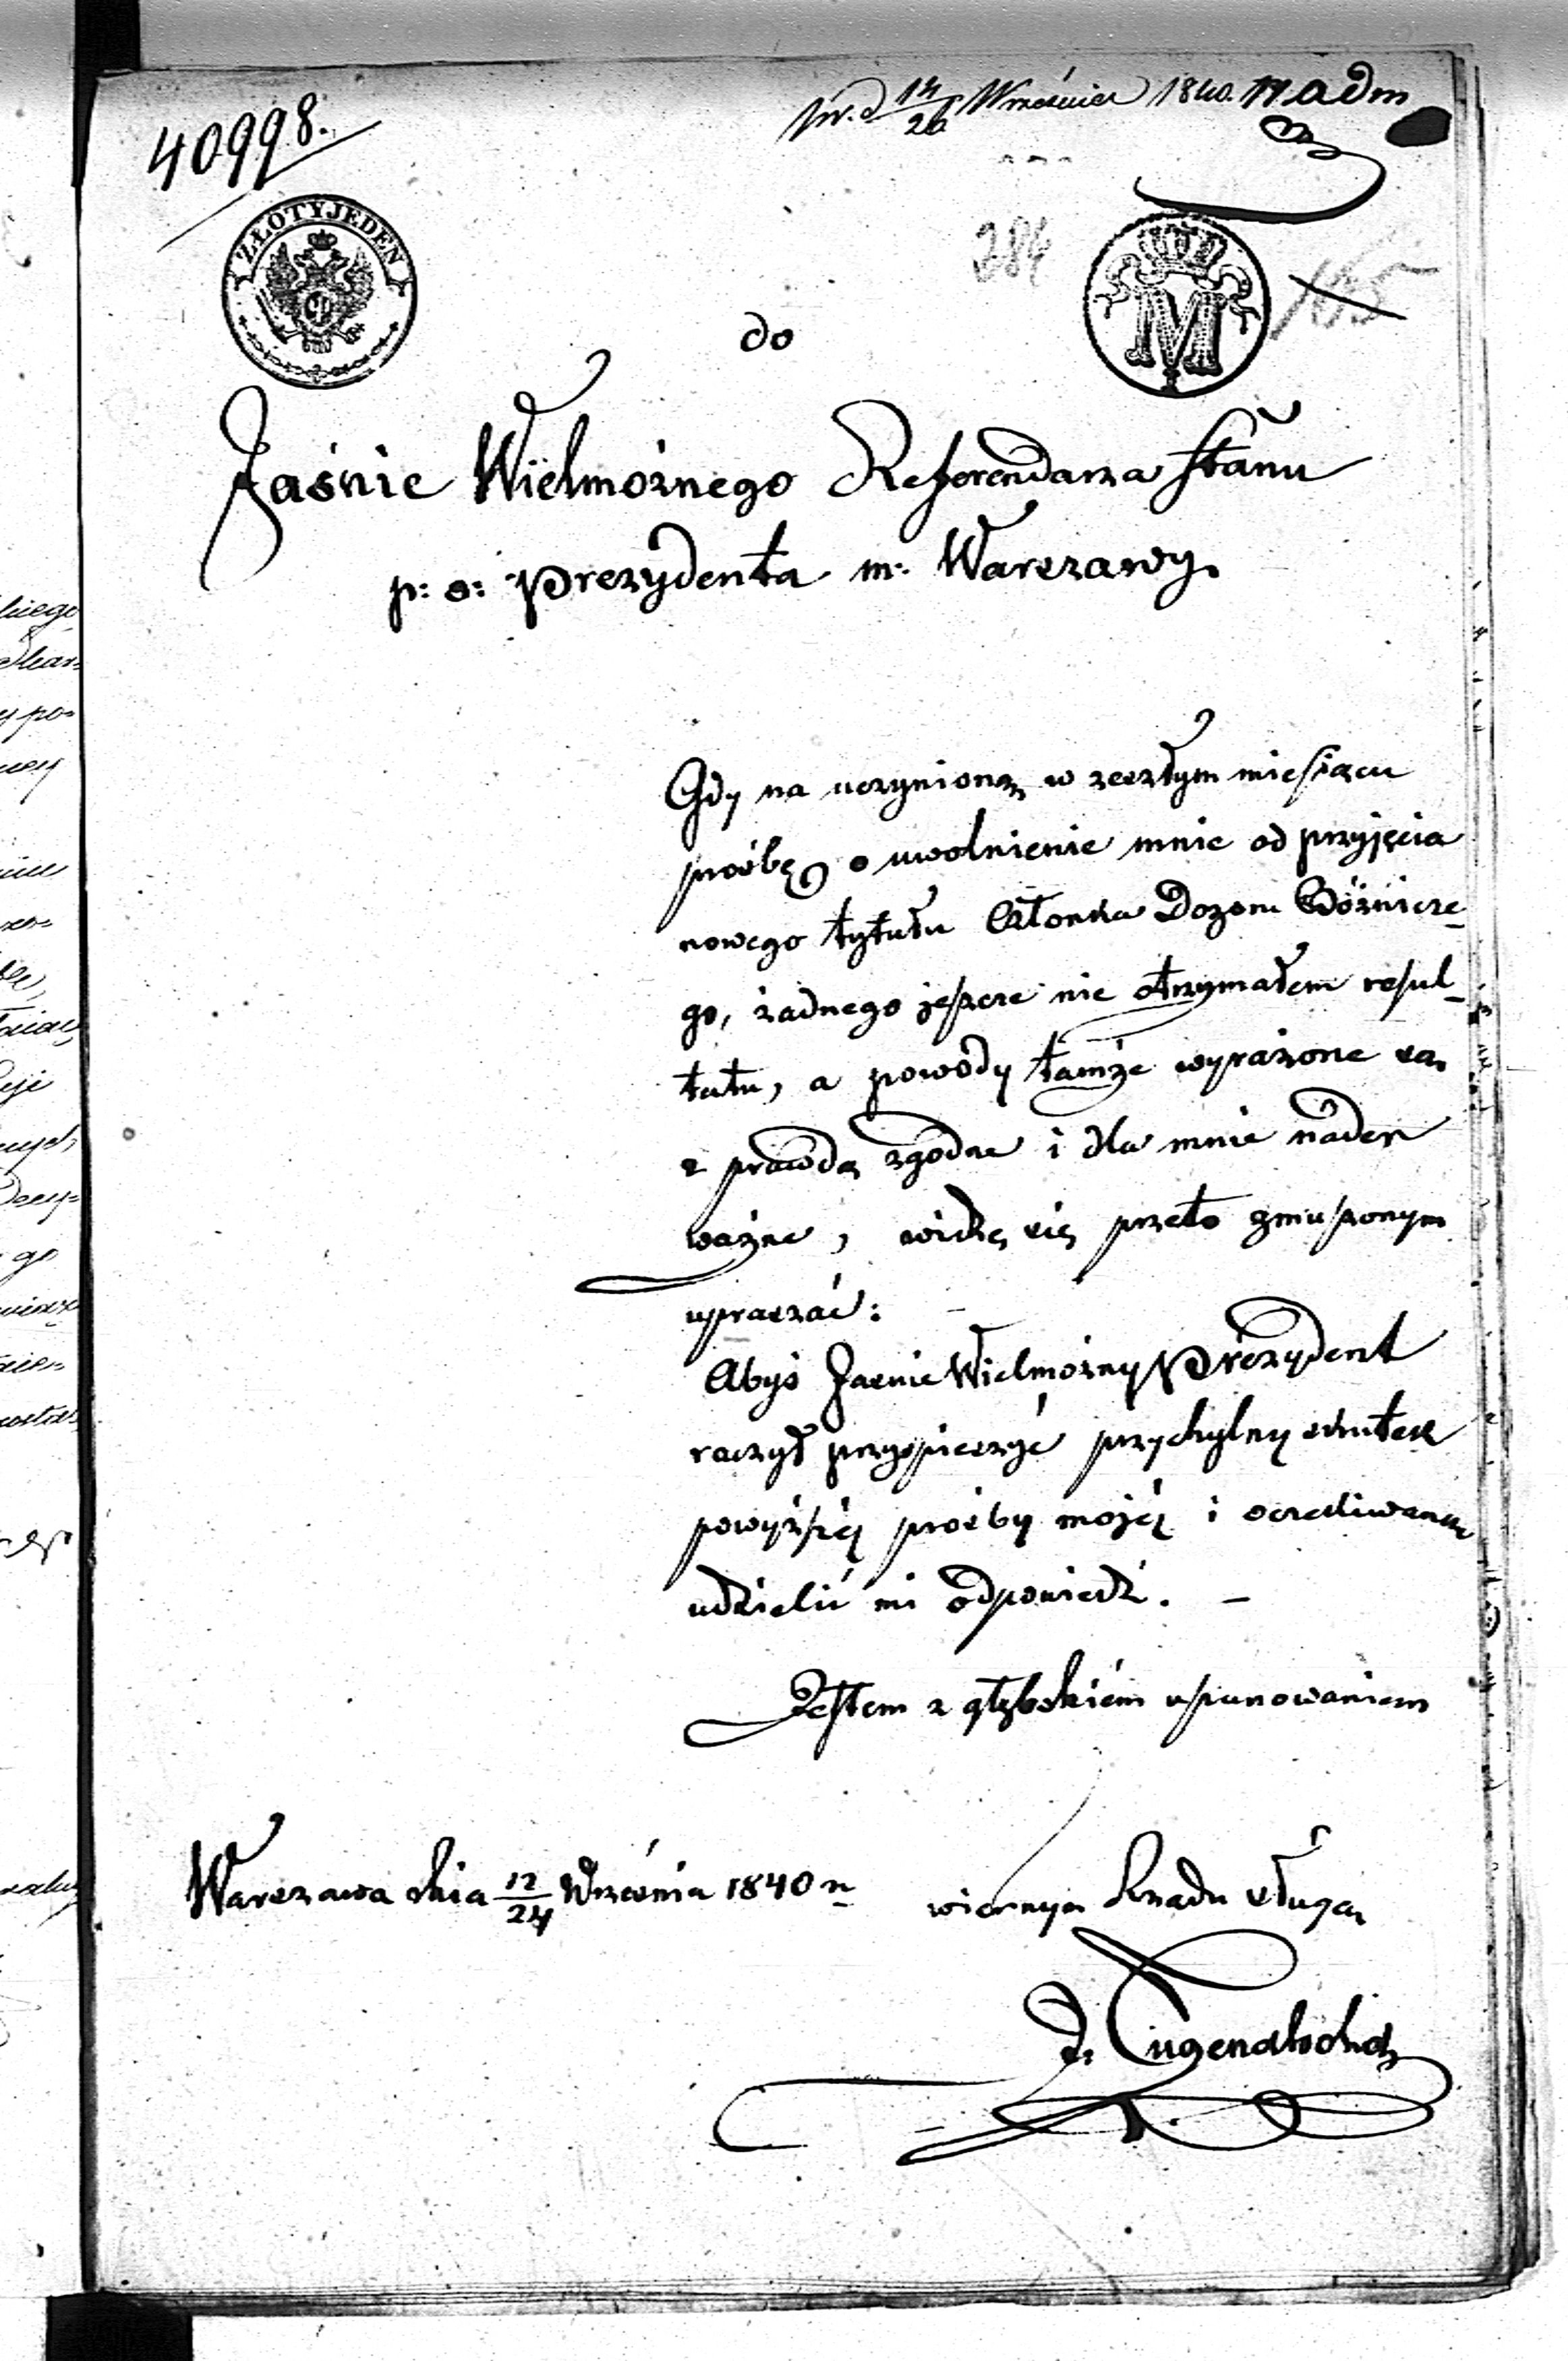 40998.
pr. d 14/26 Września 1840. W. adm
ZŁOTY JEDEN
284
165
M
do
Jaśnie Wielmożnego Referendarza Stanu
p: o: Prezydenta m: Warszawy.
Gdy na uczynioną w zeszłym miesiącu
prośbę o uwolnienie mnie od przyjęcia
nowego tytułu Członka Dozoru Bóżnicze-
go, żadnego jeszcze nie otrzymałem resul-
tatu, a powody tamże wyrażone są
z prawdą zgodne i dla mnie nader
ważne, widzę się przeto zmuszonym
upraszać:
Abyś Jaśnie Wielmożny Prezydent
raczył przyspieszyć przychylny skutek
powyższéj prośby mojéj i oczekiwaną
udzielić mi odpowiedź. –
Jestem z głębokiém uszanowaniem
Warszawa dnia 12/24 Września 1840 r.
wiernym Rządu sługą
J. Tugendhold